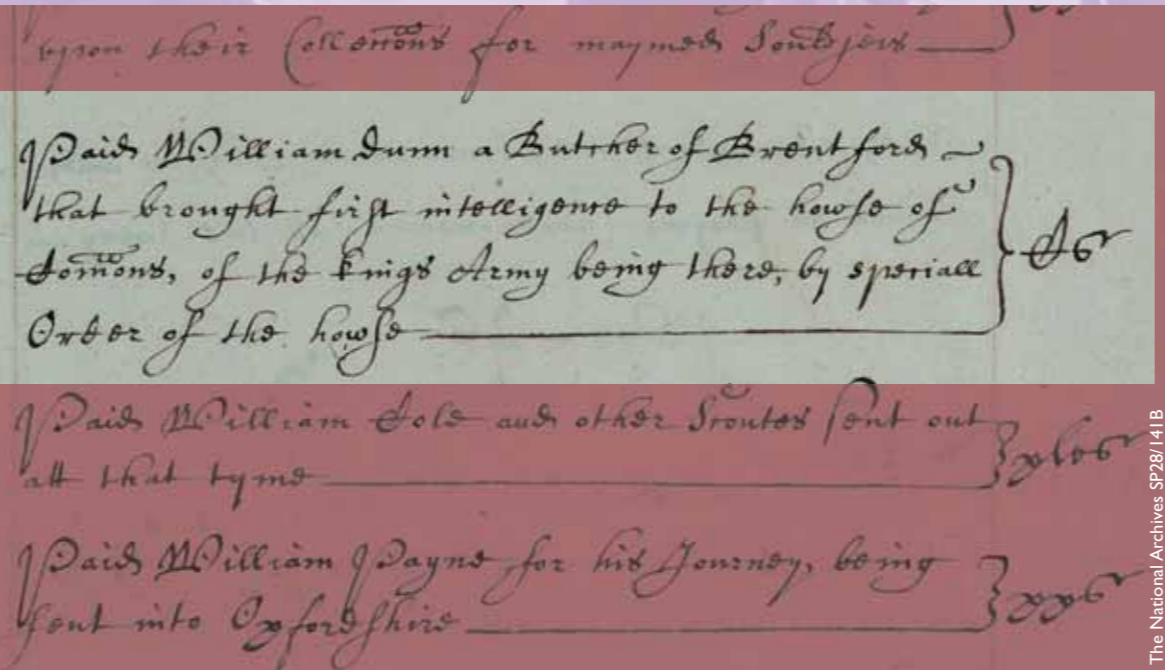 upon their Collecc̃ons for maymed Souldjers
Paid William Dunn a Butcher of Brentford
that brought first intelligence to the howse of
Com̃ons, of the Kings Army being there, by speciall
Order of the howse
Cs
Paid William Cole and other Scoutes sent out
att that tyme
xlvs
Paid William Payne for his Journey, being
sent into Oxfordshire
xxs
The National Archives SP28/141B